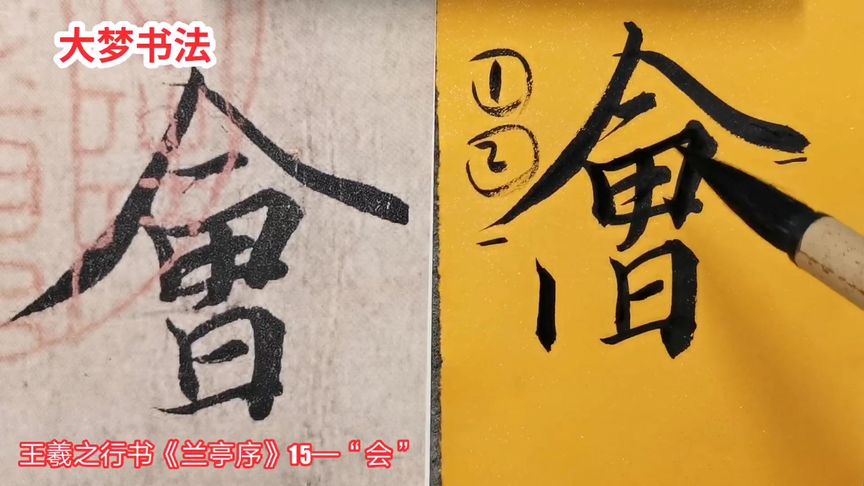 大梦书法
會
①
②
會
王羲之行书《兰亭序》15—“会”